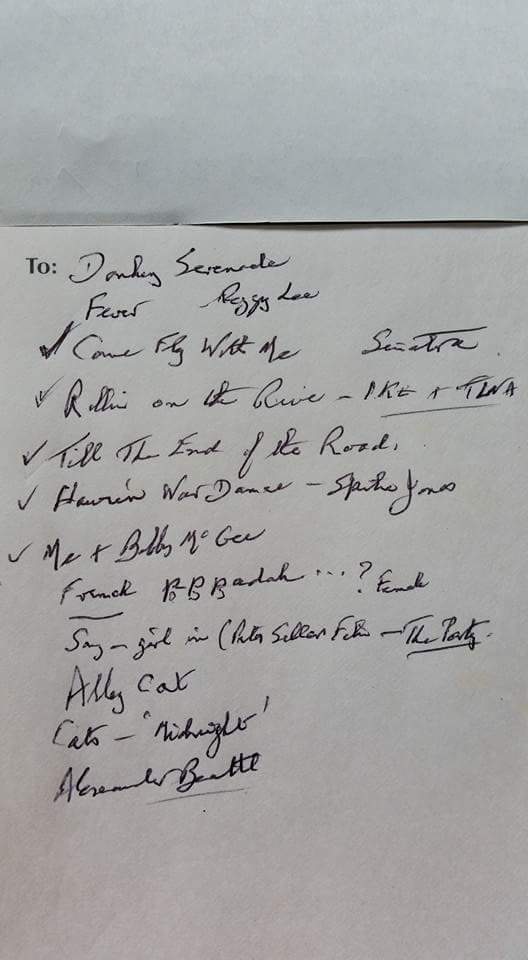 To: Donkey Serenade
Fever Peggy Lee
✓ Come Fly With Me Sinatra.
✓ Rollin on the River - IKE + TINA
✓ Till The End of the Road.
✓ War Dance - Spike Jones
✓ Me + Bobby McGee
French ...? Female
Song - girl in (Peter Sellers Film - The Party.
Alley Cat
Cats - 'Midnight'
Alexander Beatle